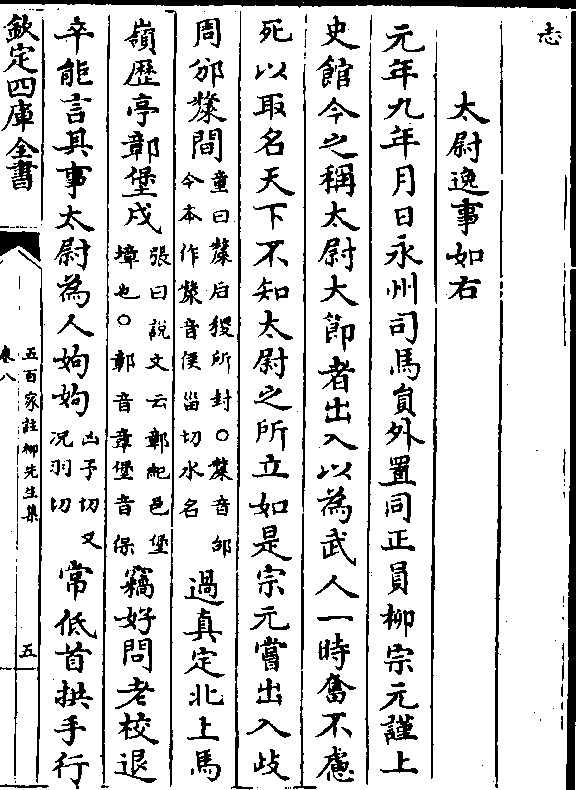 志
太尉逸事如右
元年九年月日永州司馬員外置同正員柳宗元謹上
史館今之稱太尉大節者出入以為武人一時奮不慮
死以取名天下不知太尉之所立如是宗元嘗出入岐
周邠斄間童曰斄后稷所封○斄音邰今本作漦音俟甾切水名過真定北上馬
嶺歷亭鄣堡戍張曰説文云鄣紀邑堡墇也○鄣音章堡音保竊好問老校退
卒能言其事太尉為人姁姁凶于切又况羽切常低首拱手行
欽定四庫全書
五百家註柳先生集
卷八
五